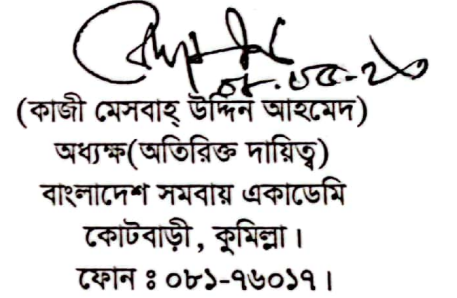 ০৮.০৫-২৩
(কাজী মেসবাহ্ উদ্দিন আহমেদ)
অধ্যক্ষ(অতিরিক্ত দায়িত্ব)
বাংলাদেশ সমবায় একাডেমি
কোটবাড়ী, কুমিল্লা।
ফোন ঃ ০৮১-৭৬০১৭।